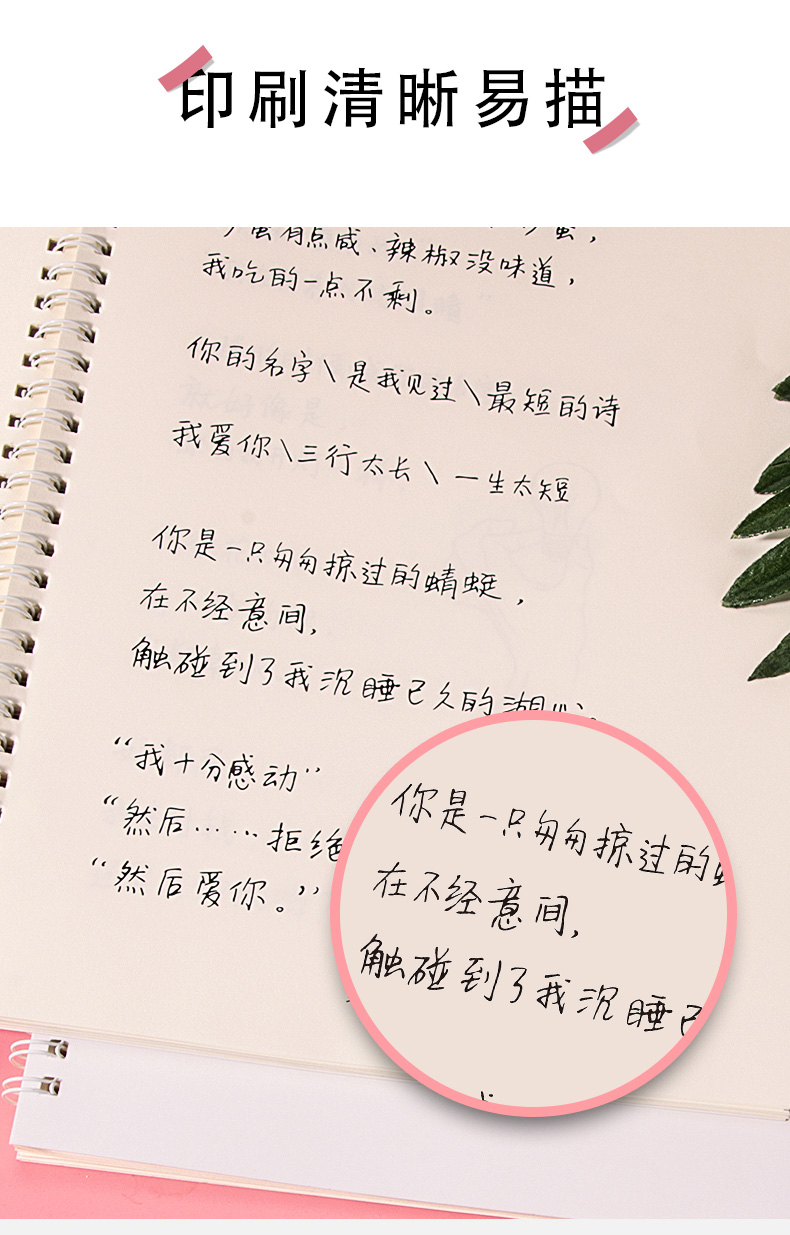 印刷清晰易描
蛋有点咸、辣椒没味道，
我吃的一点不剩。
你的名字\是我见过\最短的诗
我爱你\三行太长\一生太短
你是一只匆匆掠过的蜻蜓，
在不经意间，
触碰到了我沉睡已久的湖心。
“我十分感动”
“然后……拒绝
“然后爱你。”
你是一只匆匆掠过的
在不经意间，
触碰到了我沉睡已